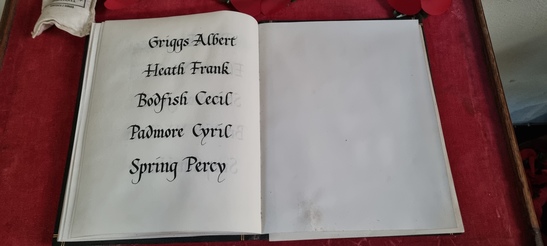 Griggs Albert
Heath Frank
Bodfish Cecil
Padmore Cyril
Spring Percy